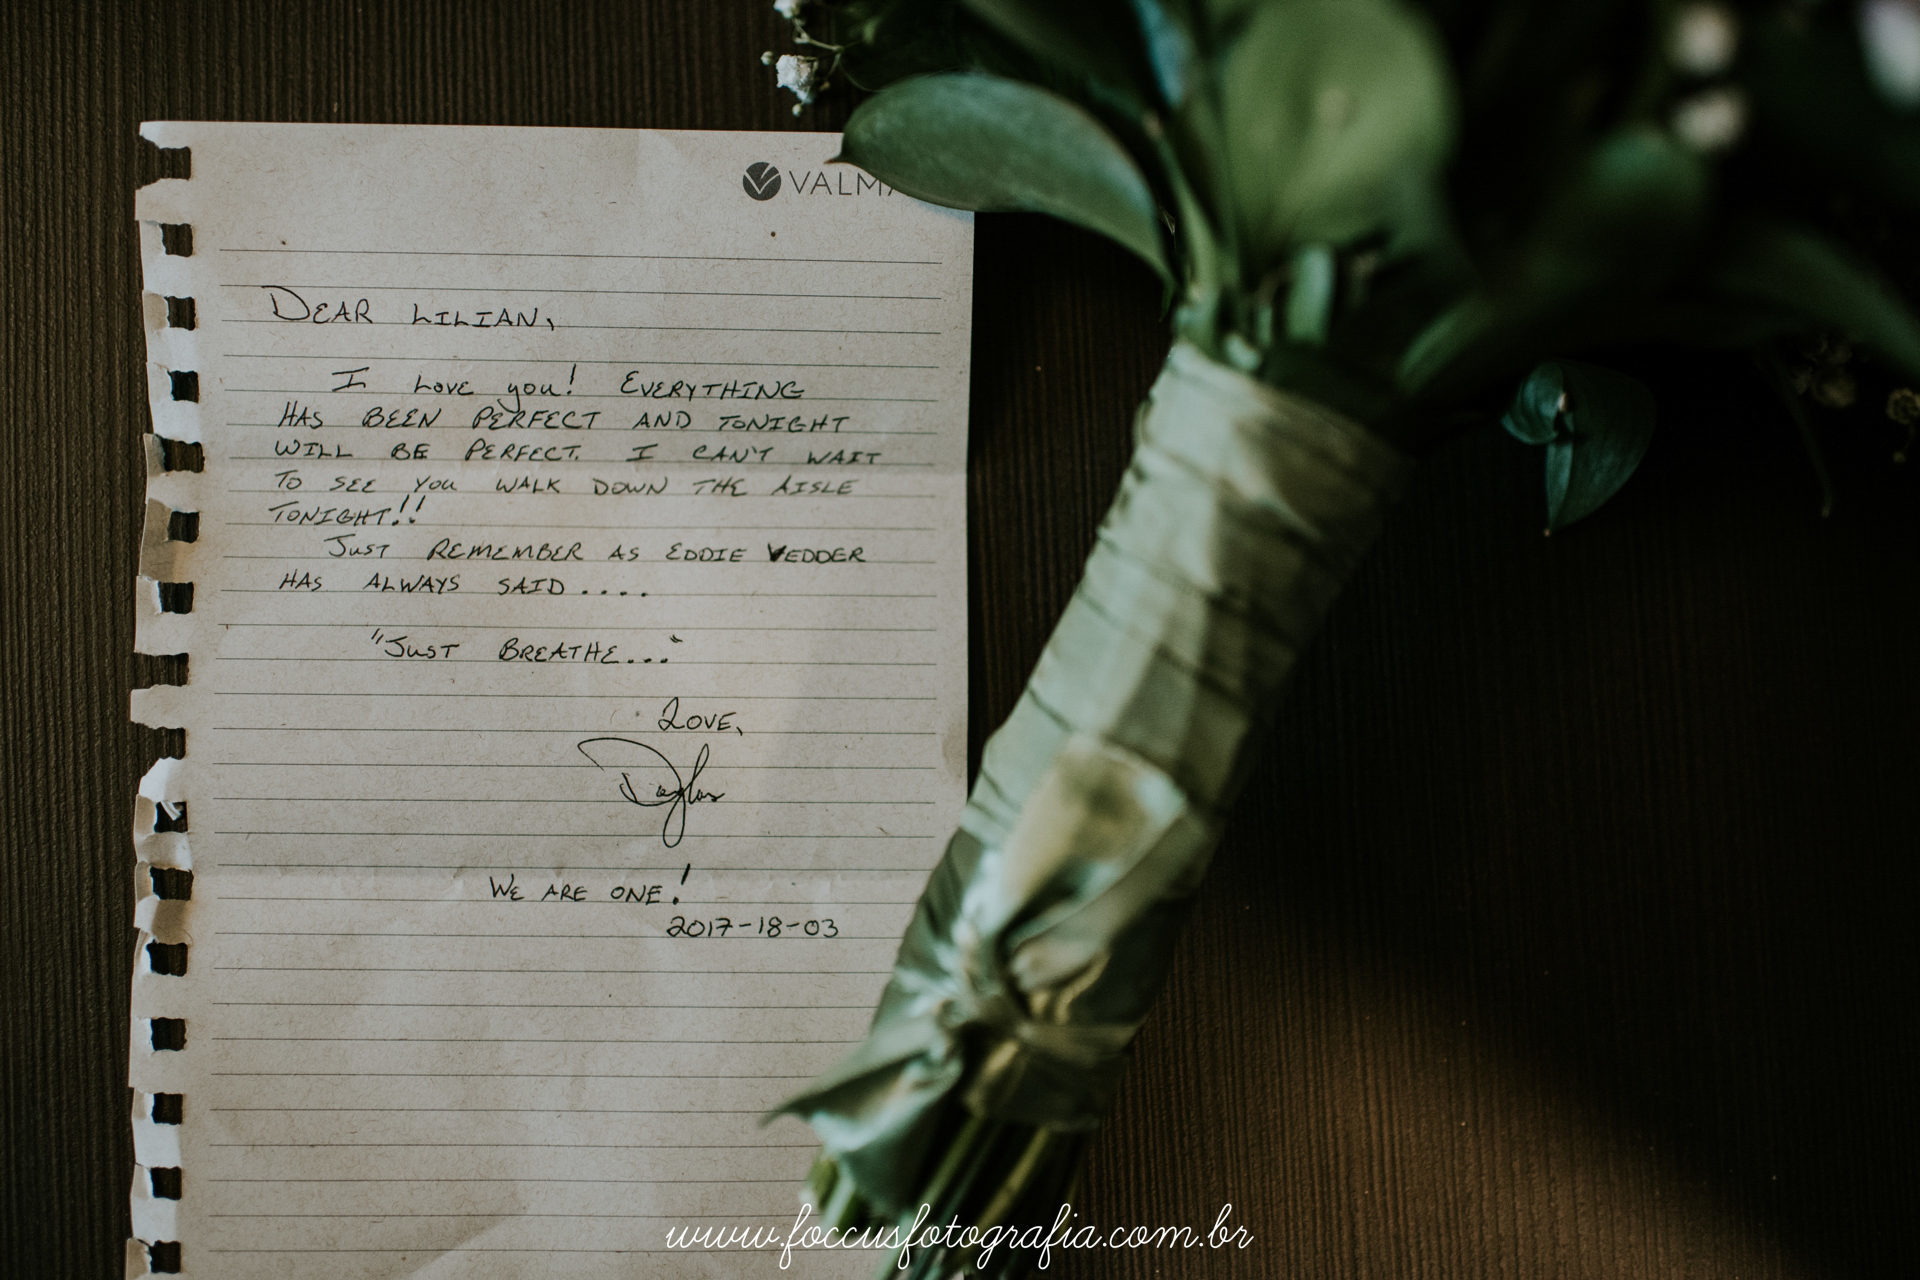 VALMA
DEAR LILIAN,
I LOVE you! EVERYTHING
HAS BEEN PERFECT AND TONIGHT
WILL BE PERFECT. I CAN'T WAIT
TO SEE YOU WALK DOWN THE AISLE
TONIGHT!!
JUST REMEMBER AS EDDIE VEDDER
HAS ALWAYS SAID....
"JUST BREATHE..."
LOVE,
Douglas
WE ARE ONE!
2017-18-03
www.foccusfotografia.com.br